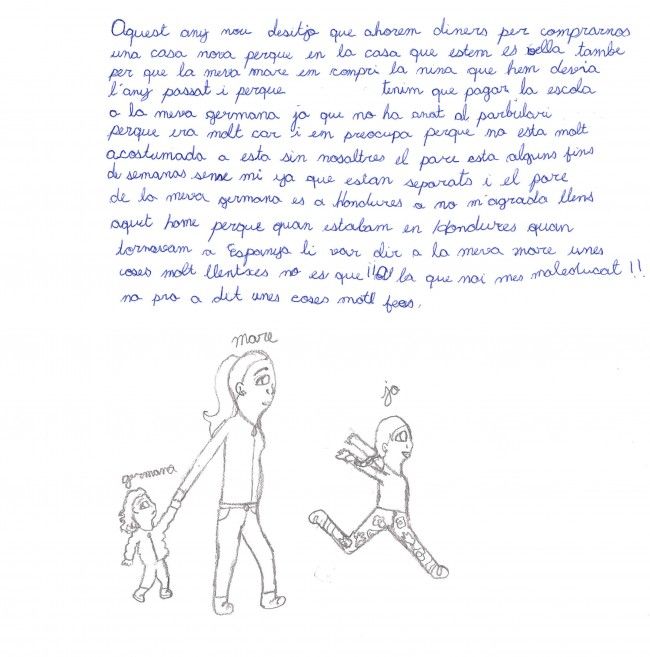 Aquest any nou desitjo que ahorem diners per comprarnos
una casa nova perque en la casa que estem es vella tambe
per que la meva mare em compri la nina que hem devia
l'any passat i perque tenim que pagar la escola
a la meva germana ja que no ha anat al parbulari
perque era molt car i em preocupa perque no esta molt
acostumada a esta sin nosaltres el pare esta alguns fins
de semanas sense mi ja que estan separats i el pare
de la meva germana es a Hondures a no m'agrada llens
aquet home perque quan estabam en Hondures quan
tornavam a Espanya li var dir a la meva mare unes
coses molt llentxes no es que la que noi mes maleducat !!
no pro a dit unes coses motl feas.
mare
jo
germana